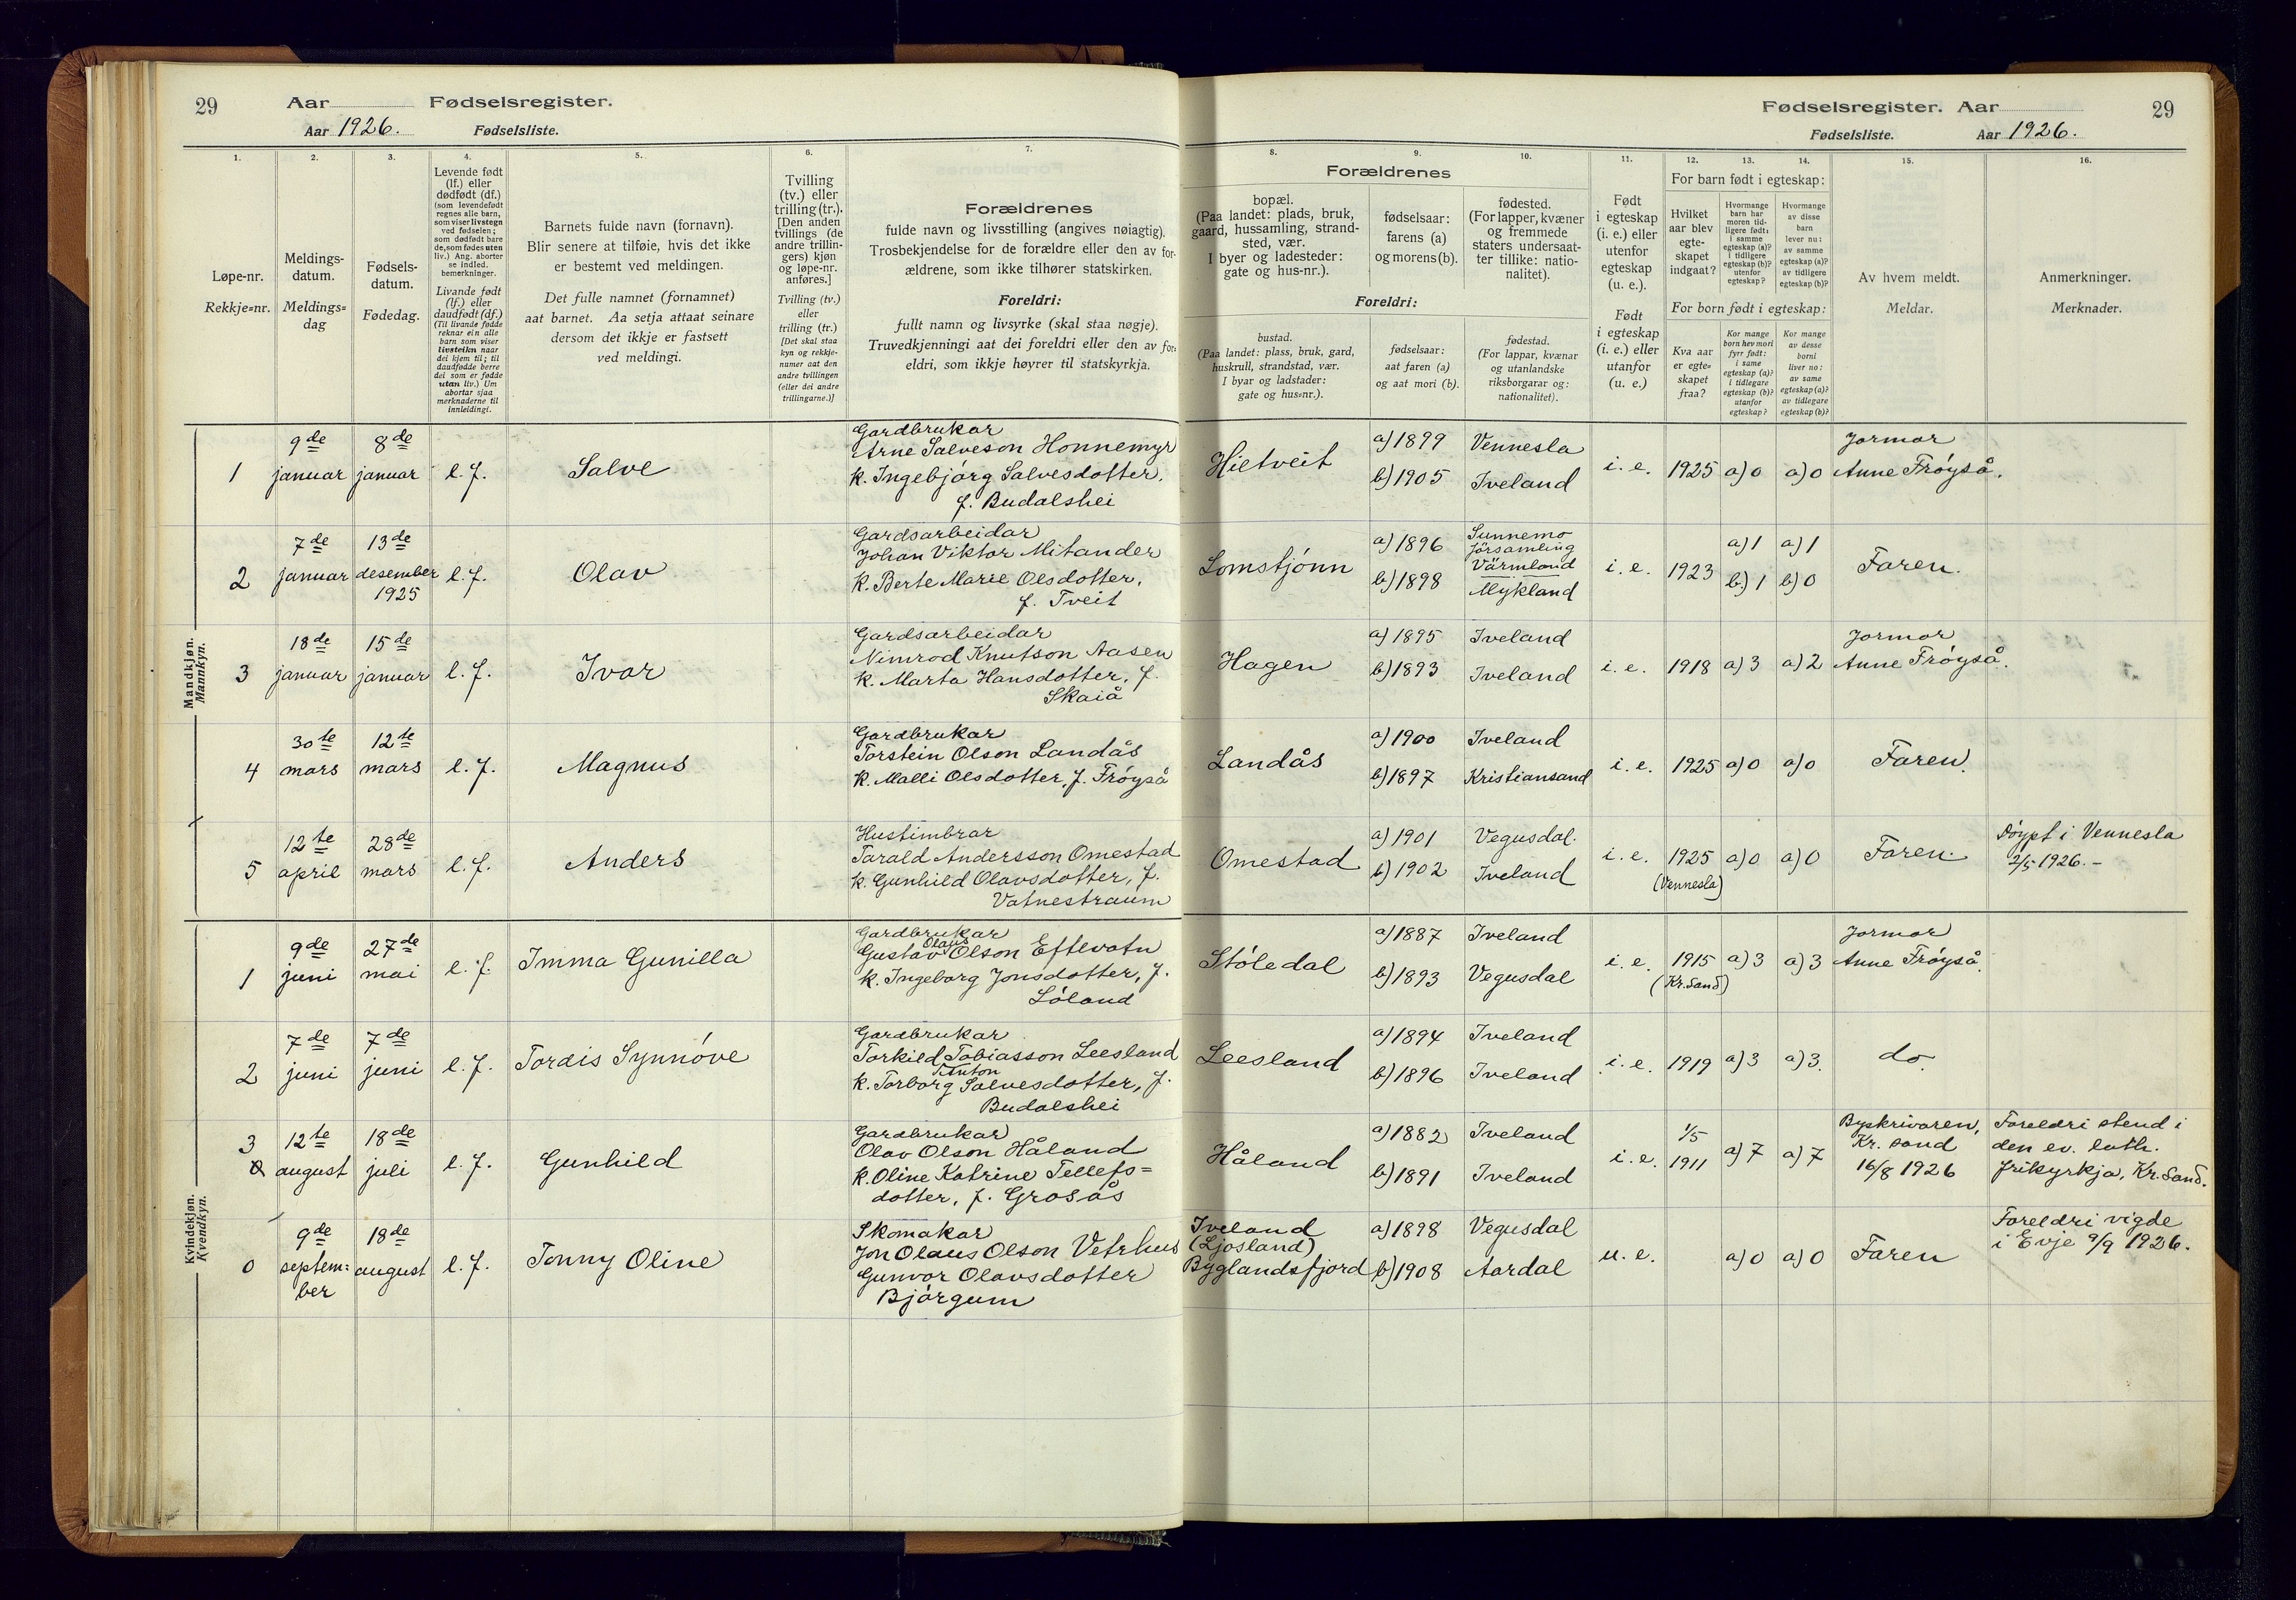 29
Aar
Fødselsregister.
Aar 1926.
Fødselsliste.
Fødselsregister. Aar
29
Fødselsliste.
Aar 1926.
1.
Løpe-nr.
Rekkje=nr.
2.
Meldings-
datum.
Meldings=
dag
3.
Fødsels-
datum.
Fødedag.
4.
Levende født
(lf.) eller
dødfødt (df.)
(som levendefødt
regnes alle barn,
som viser livstegn
ved fødselen;
som dødfødt bare
de, som fødes uten
liv.) Ang. aborter
se indled.
bemerkninger.
Livande født
(lf.) eller
daudfødt (df.)
(Til livande fødde
reknar ein alle
barn som viser
livsteikn naar
dei kjem til; til
daudfødde berre
dei som er fødde
utan liv.) Um
abortar sjaa
merknaderne til
innleidingi.
5.
Barnets fulde navn (fornavn).
Blir senere at tilføie, hvis det ikke
er bestemt ved meldingen.
Det fulle namnet (fornamnet)
aat barnet. Aa setja attaat seinare
dersom det ikkje er fastsett
ved meldingi.
6.
Tvilling
(tv.) eller
trilling (tr.).
[Den anden
tvillings (de
andre trillin-
gers) kjøn
og løpe-nr.
anføres.]
Tvilling (tv.)
eller
trilling (tr.)
[Det skal staa
kyn og rekkje-
numer aat den
andre tvillingen
(eller dei andre
trillingarne.)]
7.
Forældrenes
fulde navn og livsstilling (angives nøiagtig).
Trosbekjendelse for de forældre eller den av for-
ældrene, som ikke tilhører statskirken.
Foreldri:
fullt namn og livsyrke (skal staa nøgje).
Truvedkjenningi aat dei foreldri eller den av for-
eldri, som ikkje høyrer til statskyrkja.
8.
Forældrenes
bopæl.
(Paa landet: plads, bruk,
gaard, hussamling, strand-
sted, vær.
I byer og ladesteder:
gate og hus-nr.).
Foreldri:
bustad.
(Paa landet: plass, bruk, gard,
huskrull, strandstad, vær.
I byar og ladstader:
gate og hus=nr.).
9.
fødselsaar:
farens (a)
og morens (b).
fødselsaar:
aat faren (a)
og aat mori (b).
10.
fødested.
(For lapper, kvæner
og fremmede
staters undersaat-
ter tillike: natio-
nalitet).
fødestad.
(For lappar, kvænar
og utanlandske
riksborgarar og:
nationalitet).
11.
Født
i egteskap
(i. e.) eller
utenfor
egteskap
(u. e.).
Født
i egteskap
(i. e.) eller
utanfor
(u. e.)
12.
13.
14.
For barn født i egteskap:
Hvilket
aar blev
egte-
skapet
indgaat?
Hvormange
barn har
moren tid-
ligere født:
i samme
egteskap (a)?
i tidligere
egteskap (b)?
utenfor
egteskap?
Hvormange
av disse
barn
lever nu:
av samme
egteskap (a)?
av tidligere
egteskap (b)?
For born født i egteskap:
Kva aar
er egte=
skapet
fraa?
Kor mange
born hev mori
fyrr født:
i same
egteskap (a)?
i tidlegare
egteskap (b)?
utanfor
egteskap?
Kor mange
av desse
borni
liver no:
av same
egteskap (a)?
av tidlegare
egteskap (b)?
15.
Av hvem meldt.
Meldar.
16.
Anmerkninger.
Merknader.
Mandkjøn.
Mannkyn.
1
9de
januar
8de
januar
l. f.
Salve
Gardbrukar
Arne Salveson Honnemyr
k. Ingebjørg Salvesdotter,
f. Budalshei
Hietveit
a) 1899
b) 1905
Vennesla
Iveland
i. e.
1925
a) 0
a) 0
Jormor
Anne Frøyså.
2
7de
januar
13de
desember
1925
l. f.
Olav
Gardsarbeidar
Johan Viktor Mitander
k. Berte Marie Olsdotter,
f. Tveit
Lomstjønn
a) 1896
b) 1898
Sunnemo
församling
Värmland
Mykland
i. e.
1923
a) 1
b) 1
a) 1
b) 0
Faren.
3
18de
januar
15de
januar
l. f.
Ivar
Gardsarbeidar
Nimrod Knutson Aasen
k. Marta Hansdotter, f.
Skaiå
Hagen
a) 1895
b) 1893
Iveland
Iveland
i. e.
1918
a) 3
a) 2
Jormor
Anne Frøyså.
4
30te
mars
12te
mars
l. f.
Magnus
Gardbrukar
Torstein Olson Landås
k. Malli Olsdotter, f. Frøyså
Landås
a) 1900
b) 1897
Iveland
Kristiansand
i. e.
1925
a) 0
a) 0
Faren.
5
12te
april
28de
mars
l. f.
Anders
Hustimbrar
Tarald Andersson Omestad
k. Gunhild Olavsdotter, f.
Vatnestraum
Omestad
a) 1901
b) 1902
Vegusdal.
Iveland
i. e.
1925
(Vennesla)
a) 0
a) 0
Faren.
Døypt i Vennesla
2/5 1926. -
Kvindekjøn.
Kvendkyn.
1
9de
juni
27de
mai
l. f.
Imma Gunilla
Gardbrukar
Gustav Olaus Olson Eftevatn
k. Ingeborg Jonsdotter, f.
Løland
Støledal
a) 1887
b) 1893
Iveland
Vegusdal
i. e.
1915
(Kr.sand)
a) 3
a) 3
Jormor
Anne Frøyså.
2
7de
juni
7de
juni
l. f.
Tordis Synnøve
Gardbrukar
Torkild Tobiasson Leesland
Anton
k. Torborg Salvesdotter, f.
Budalshei
Leesland
a) 1894
b) 1896
Iveland
Iveland
i. e.
1919
a) 3
a) 3.
do.
3
12te
august
18de
juli
l. f.
Gunhild
Gardbrukar
Olav Olson Håland
k. Oline Katrine Tellefs=
dotter, f. Grosås
Håland
a) 1882
b) 1891
Iveland
Iveland
i. e.
1/5
1911
a) 7
a) 7
Byskrivaren,
Kr. sand
16/8 1926
Foreldri stend i
den ev. luth.
frikyrkja, Kr.sand.
0
9de
septem=
ber
18de
august
l. f.
Tonny Oline
Skomakar
Jon Olaus Olson Vetrhus
Gunvor Olavsdotter
Bjørgum
Iveland
(Ljosland)
Byglandsfjord
a) 1898
b) 1908
Vegusdal
Aardal
u. e.
a) 0
a) 0
Faren
Foreldri vigde
i Evje 9/9 1926.